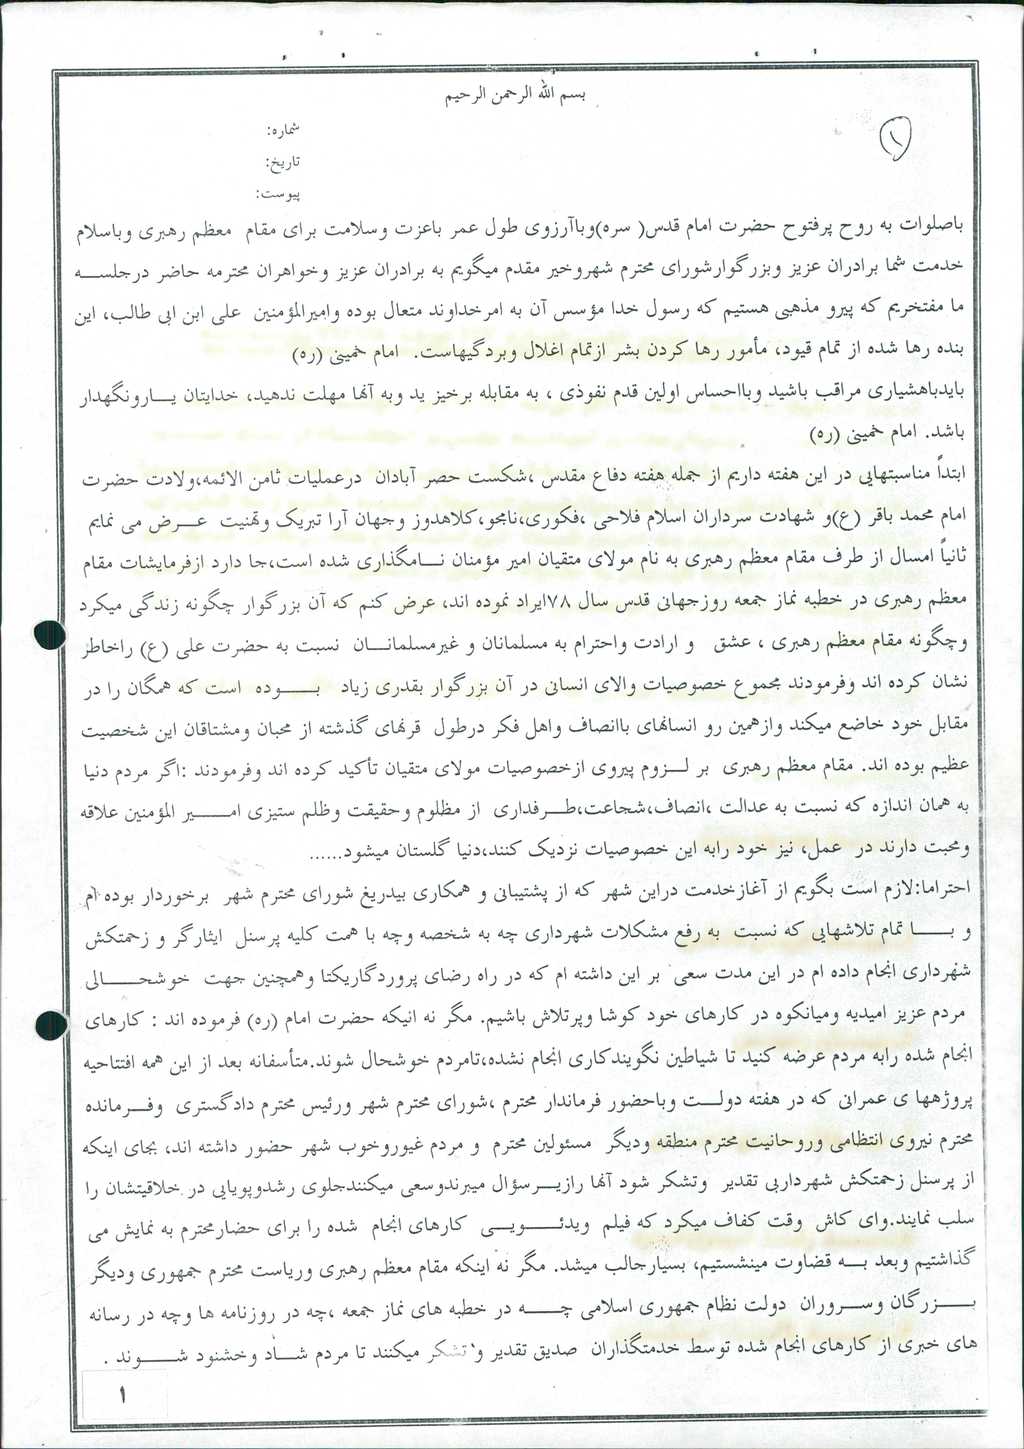 بسم الله الرحمن الرحیم
۱
شماره:
تاریخ:
پیوست:
باصلوات به روح پرفتوح حضرت امام قدس( سره)وباآرزوی طول عمر باعزت وسلامت برای مقام معظم رهبری وباسلام
خدمت شما برادران عزیز وبزرگوارشورای محترم شهروخیر مقدم میگویم به برادران عزیز وخواهران محترمه حاضر درجلسه
ما مفتخریم که پیرو مذهبی هستیم که رسول خدا مؤسس آن به امرخداوند متعال بوده وامیرالمؤمنین علی ابن ابی طالب، این
بنده رها شده از تمام قیود، مأمور رها کردن بشر ازتمام اغلال وبردگیهاست. امام خمینی (ره)
بایدباهشیاری مراقب باشید وبااحساس اولین قدم نفوذی ، به مقابله برخیز ید وبه آنها مهلت ندهید، خدایتان یارونگهدار
باشد. امام خمینی (ره)
ابتداً مناسبتهایی در این هفته داریم از جمله هفته دفاع مقدس ،شکست حصر آبادان درعملیات ثامن الائمه،ولادت حضرت
امام محمد باقر (ع)و شهادت سرداران اسلام فلاحی ،فکوری،نامجو،کلاهدوز وجهان آرا تبریک وتهنیت عرض می نمایم
ثانیاً امسال از طرف مقام معظم رهبری به نام مولای متقیان امیر مؤمنان نامگذاری شده است،جا دارد ازفرمایشات مقام
معظم رهبری در خطبه نماز جمعه روزجهانی قدس سال ۷۸ایراد نموده اند، عرض کنم که آن بزرگوار چگونه زندگی میکرد
وچگونه مقام معظم رهبری ، عشق و ارادت واحترام به مسلمانان و غیرمسلمانان نسبت به حضرت علی (ع) راخاطر
نشان کرده اند وفرمودند مجموع خصوصیات والای انسانی در آن بزرگوار بقدری زیاد بوده است که همگان را در
مقابل خود خاضع میکند وازهمین رو انسانهای باانصاف واهل فکر درطول قرنهای گذشته از محبان ومشتاقان این شخصیت
عظیم بوده اند. مقام معظم رهبری بر لزوم پیروی ازخصوصیات مولای متقیان تأکید کرده اند وفرمودند :اگر مردم دنیا
به همان اندازه که نسبت به عدالت ،انصاف،شجاعت،طرفداری از مظلوم وحقیقت وظلم ستیزی امیر المؤمنین علاقه
ومحبت دارند در عمل، نیز خود رابه این خصوصیات نزدیک کنند،دنیا گلستان میشود......
احتراما:لازم است بگویم از آغازخدمت دراین شهر که از پشتیبانی و همکاری بیدریغ شورای محترم شهر برخوردار بوده ام
و با تمام تلاشهایی که نسبت به رفع مشکلات شهرداری چه به شخصه وچه با همت کلیه پرسنل ایثارگر و زحمتکش
شهرداری انجام داده ام در این مدت سعی بر این داشته ام که در راه رضای پروردگاریکتا وهمچنین جهت خوشحالی
مردم عزیز امیدیه ومیانکوه در کارهای خود کوشا وپرتلاش باشیم. مگر نه انیکه حضرت امام (ره) فرموده اند : کارهای
انجام شده رابه مردم عرضه کنید تا شیاطین نگویندکاری انجام نشده،تامردم خوشحال شوند.متأسفانه بعد از این همه افتتاحیه
پروژهها ی عمرانی که در هفته دولت وباحضور فرماندار محترم ،شورای محترم شهر ورئیس محترم دادگستری وفرمانده
محترم نیروی انتظامی وروحانیت محترم منطقه ودیگر مسئولین محترم و مردم غیوروخوب شهر حضور داشته اند، بجای اینکه
از پرسنل زحمتکش شهرداریی تقدیر وتشکر شود آنها رازیرسؤال میبرندوسعی میکنندجلوی رشدوپویایی در خلاقیتشان را
سلب نمایند.وای کاش وقت کفاف میکرد که فیلم ویدئویی کارهای انجام شده را برای حضارمحترم به نمایش می
گذاشتیم وبعد به قضاوت مینشستیم، بسیارجالب میشد. مگر نه اینکه مقام معظم رهبری وریاست محترم جمهوری ودیگر
بزرگان وسروران دولت نظام جمهوری اسلامی چه در خطبه های نماز جمعه ،چه در روزنامه ها وچه در رسانه
های خبری از کارهای انجام شده توسط خدمتگذاران صدیق تقدیر و تشکر میکنند تا مردم شاد وخشنود شوند .
۱